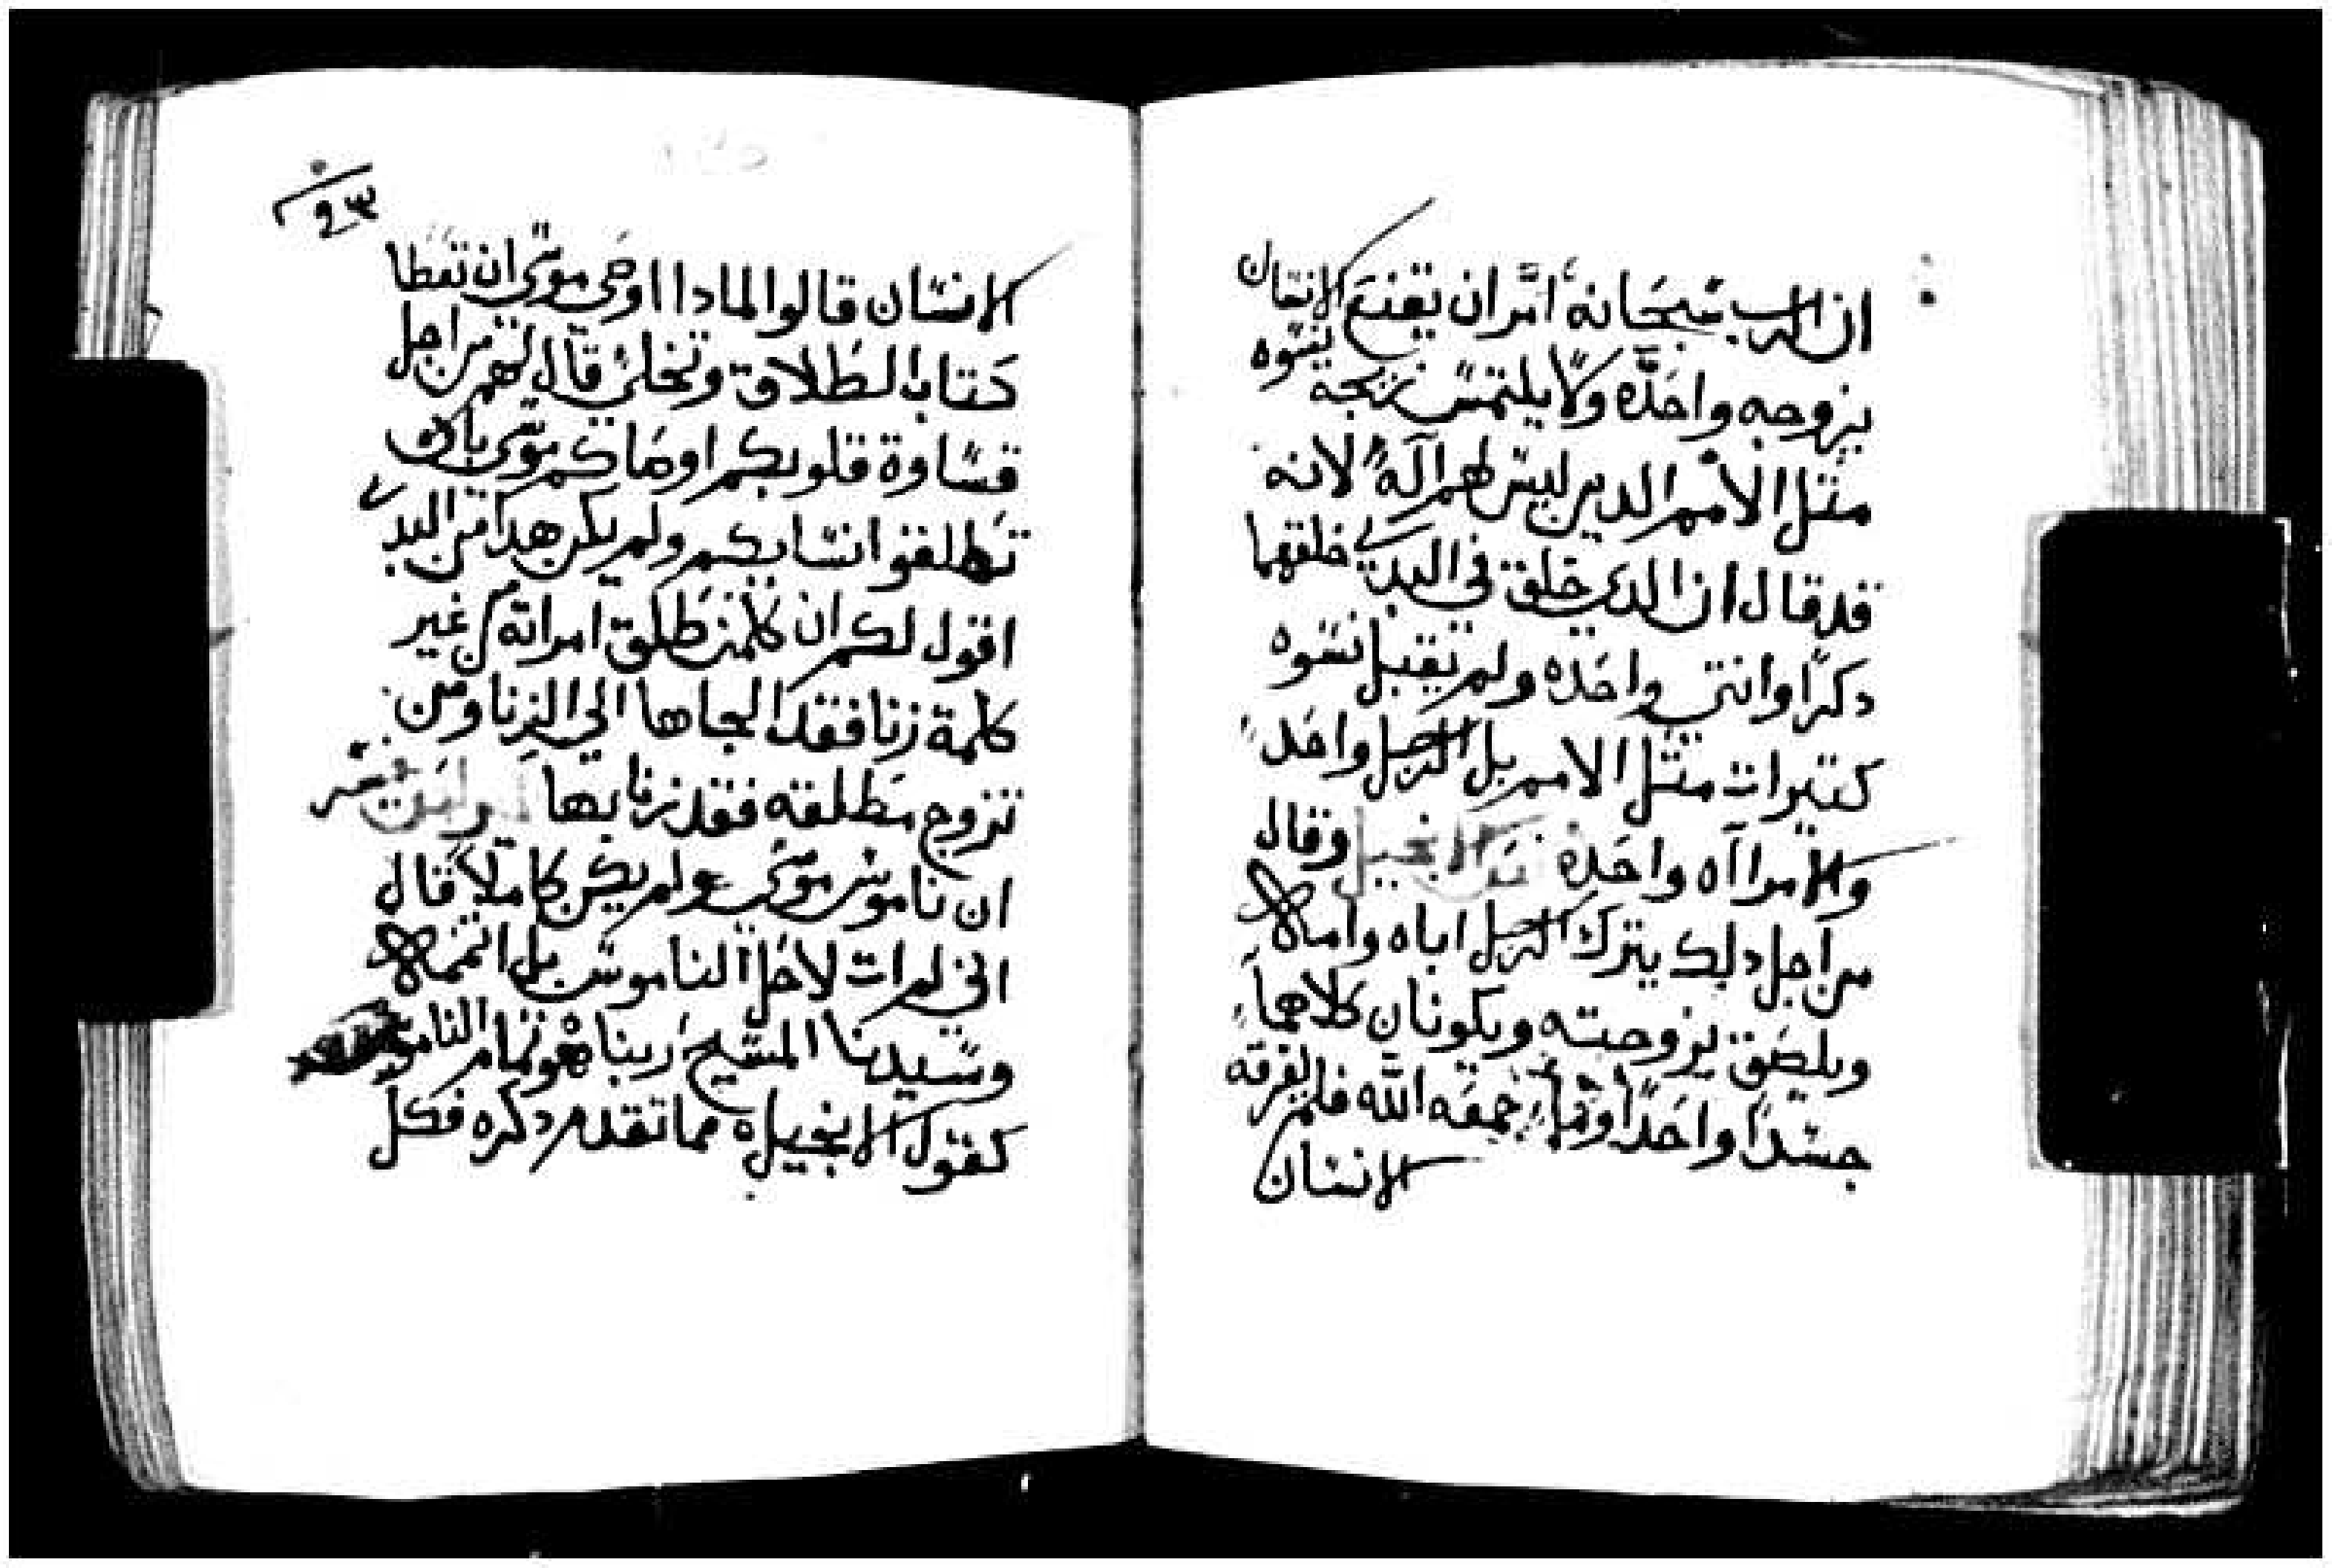 ان الرب سبحانه امر ان يقنع الانسان
بزوجه واحده ولا يلتمس نسوه
مثل الامم الدين ليس لهم اله لانه
قد قال ان الدي خلق في البدي خلقهما
دكرا وانتي واحده ولم يقبل نسوه
كتيرات متل الامم بل الرجل واحد
والامرااه واحده الانجيل وقال
من اجل دلك يترك الرجل اباه وامه
ويلصق بزوجته ويكونان كلاهما
جسدا واحدا وما جمعه الله فلا يفرقه
الانسان
الانسان قالوا لمادا اوصى موسى ان تعطا
كتاب الطلاق وتخلى قال لهم من اجل
قساوة قلوبكم اوصاكم موسى بان
تطلقوا نسايكم ولم يكن هدا من البدي
اقول لكم ان كلمن طلق امراته من غير
كلمة زنا فقد الجاها الي الزنا ومن
تزوج مطلقه فقد زنا بها
ان ناموس موسى ولم يكن كاملا قال
اني لم ات لاحل الناموس بل اتممه
وسيدنا المسيح ربنا هو تمام الناموس
كقول الانجيل مما تقدم دكره فكل